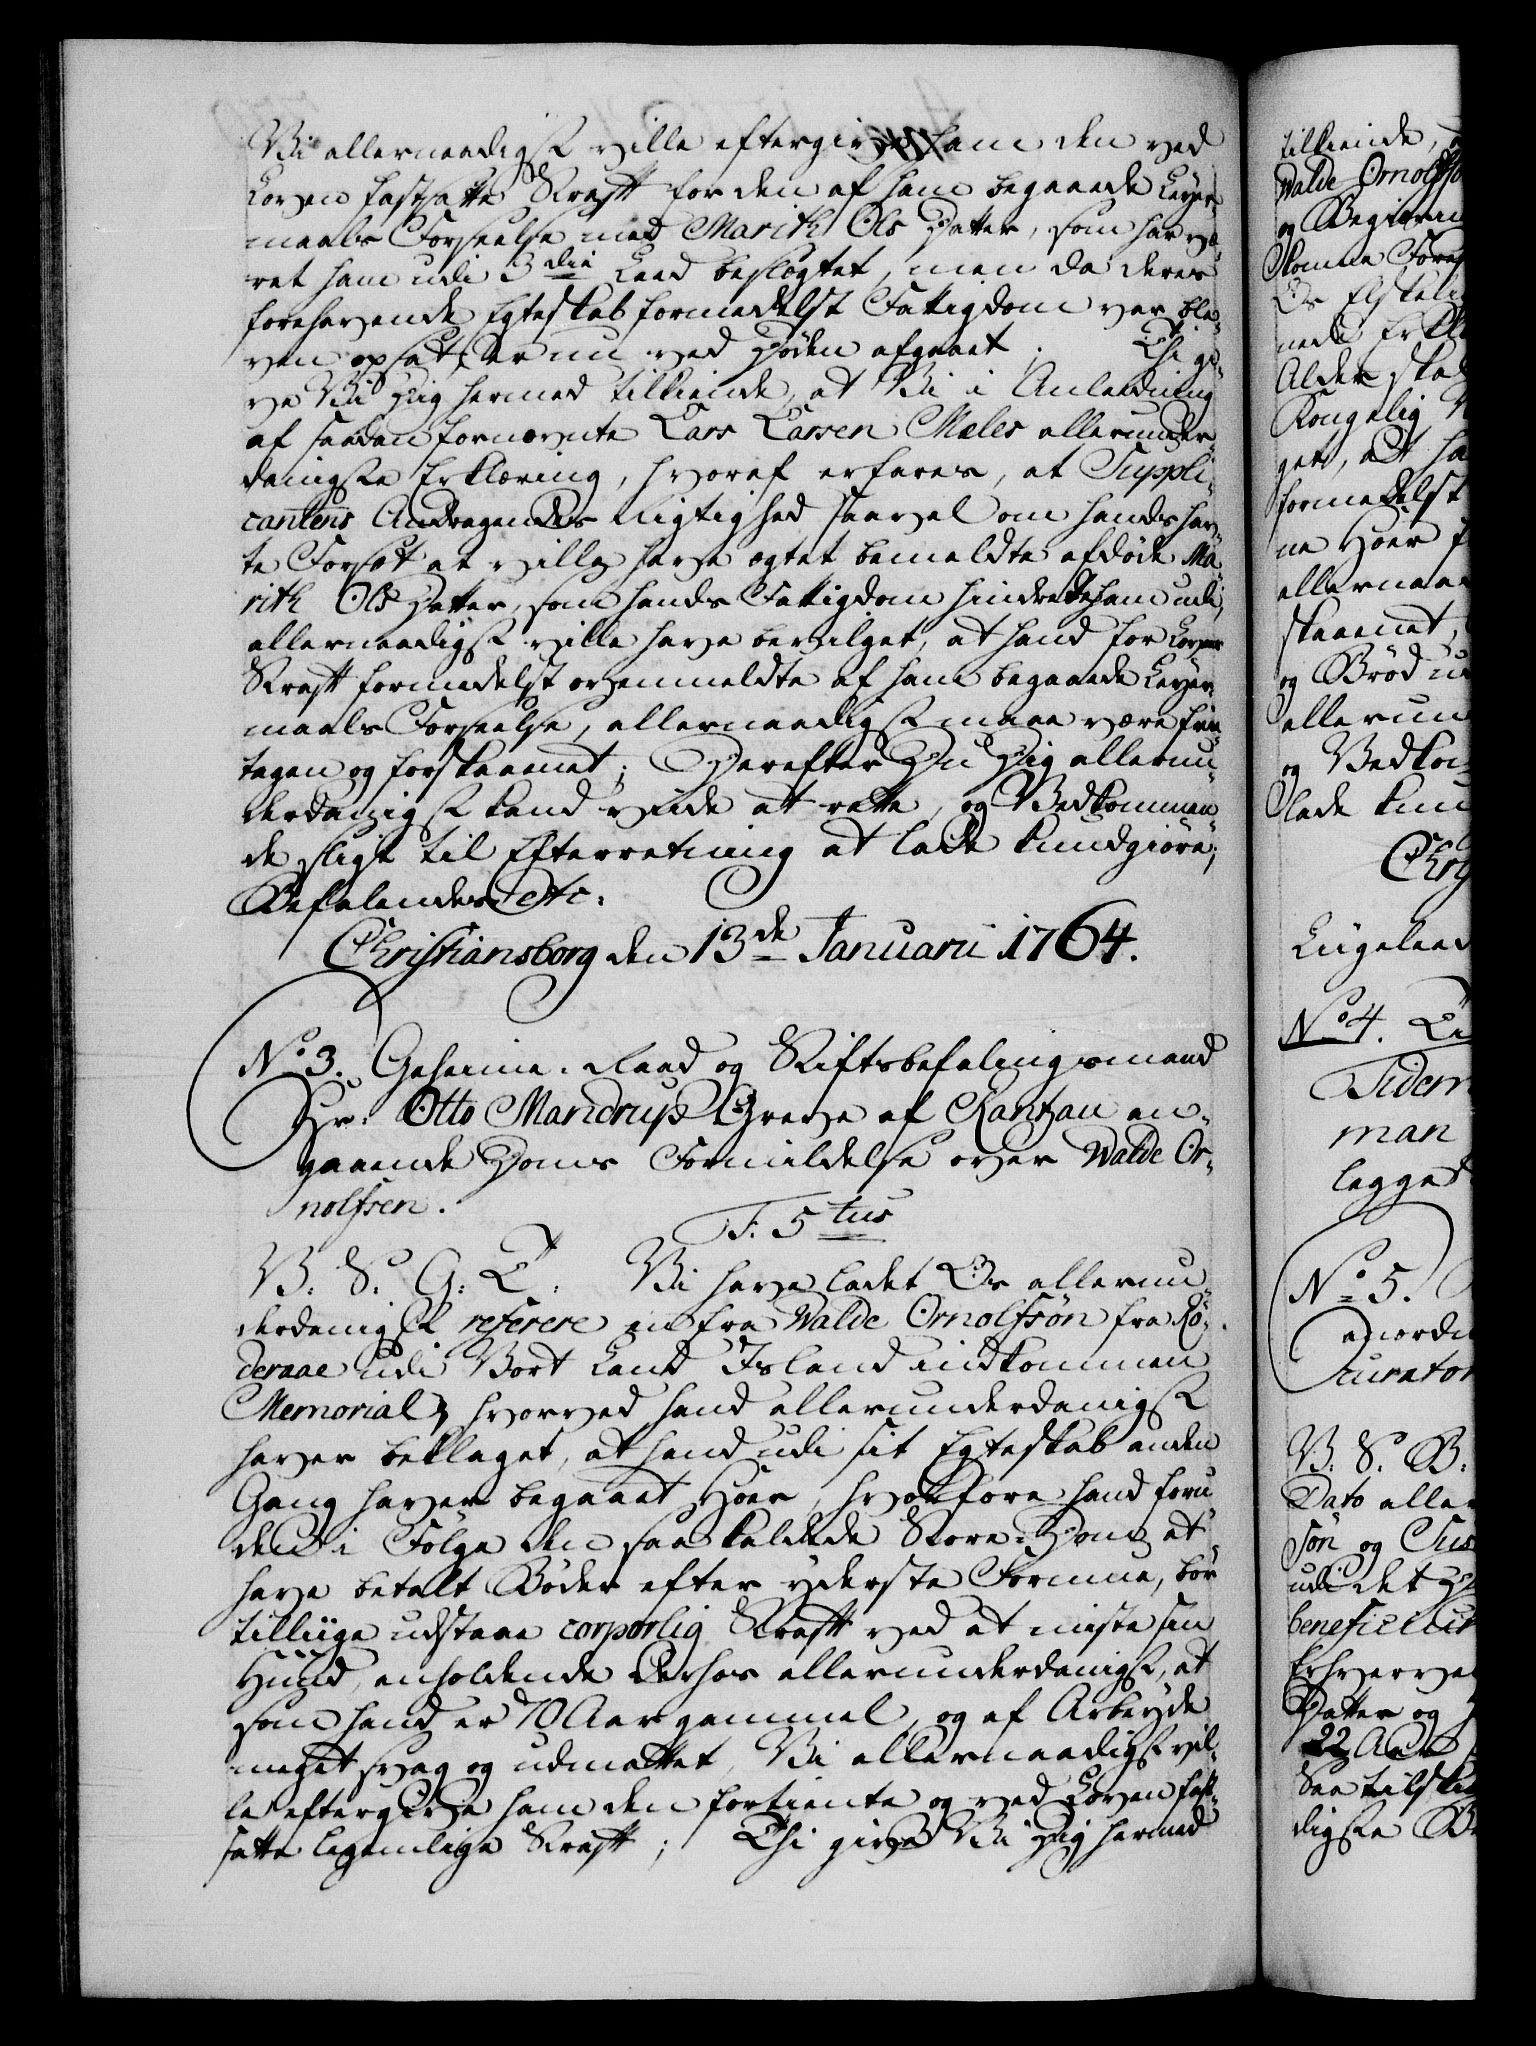 Vi allernaadigst ville eftergive ham den ved
Loven fastsatte Straff for den af ham begaaede Leyer¬
maals Forseelse med Marith Ols Datter, som har væ¬
ret ham udi 3die Leed beslægtet, men da deres
forehavende Egteskab formedelst Fattigdom var ble¬
ven opsat, er nu ved Døden afgaaet. Thi gi¬
ve Vi Dig hermed tilkiende, at Vi i Anleedning
af saadan fornævnte Lars Larsen Mæles allerunder¬
danigste Erklæring, hvoraf erfares, at Suppli¬
cantens Andragendes Rigtighed saavel om hands hav¬
te Forsæt at ville have ægtet bemeldte afdøde Ma¬
rith Ols Datter, som hands Fattigdom hindrede ham udi,
allernaadigst ville have bevilget, at hand for Lovens
Straff formedelst ovenmeldte af ham begaaede Leyer¬
maals Forseelse, allernaadigst maae være frie¬
tagen og forskaanet; Derefter Du Dig allerun¬
derdanigst kand viide at rette, og Vedkommen¬
de sligt til Efterretning at lade kundgiøre;
Befalendes etc:
Christiansborg den 13de Januarii 1764.
No 3. Geheime-Raad og Stiftsbefalingsmand
Hr: Otto Mandrup Greve af Rantzau an¬
gaaende Doms Formildelse over Walde Or¬
nolfsen.
F: 5tus
V. S. G: T: Vi have ladet Os allerun¬
derdanigst referere en fra Walde Ornolfsøn fra Rø¬
deraae udi Vort Land Island indkommen
Memorial, hvorved hand allerunderdanigst
haver beklaget, at hand udi sit Egteskab anden
Gang haver begaaet Hoer, hvorfore hand foru¬
den i Følge den saa kaldede Store-Dom at
have betalt Bøder efter yderste Formue, bør
tilliige udstaae corporlig Straff ved at miste sin
Huud, anholdende derhos allerunderdanigst, at
som hand er 70 Aar gammel, og af Arbeyde
meget svag og udmattet, Vi allernaadigst vil¬
le eftergive ham den fortiente og ved Loven fast¬
satte legemlige Straff; Thi give Vi Dig hermed
tilkiende,
Walde Ornolfsø
og Begiæring
Os Elskelig
Alder skal
Kongelig
formedelst
ne Hoer
allernaa
skaanet,
og Brød
allerun
og Vedkom
lade kun
Chri
Liigeleed
No 4.
man
legget
No 5.
anordn
Curator
V. S. B:
Dato aller
søn og Sus
udi det
Datter og
22 Aar
digste